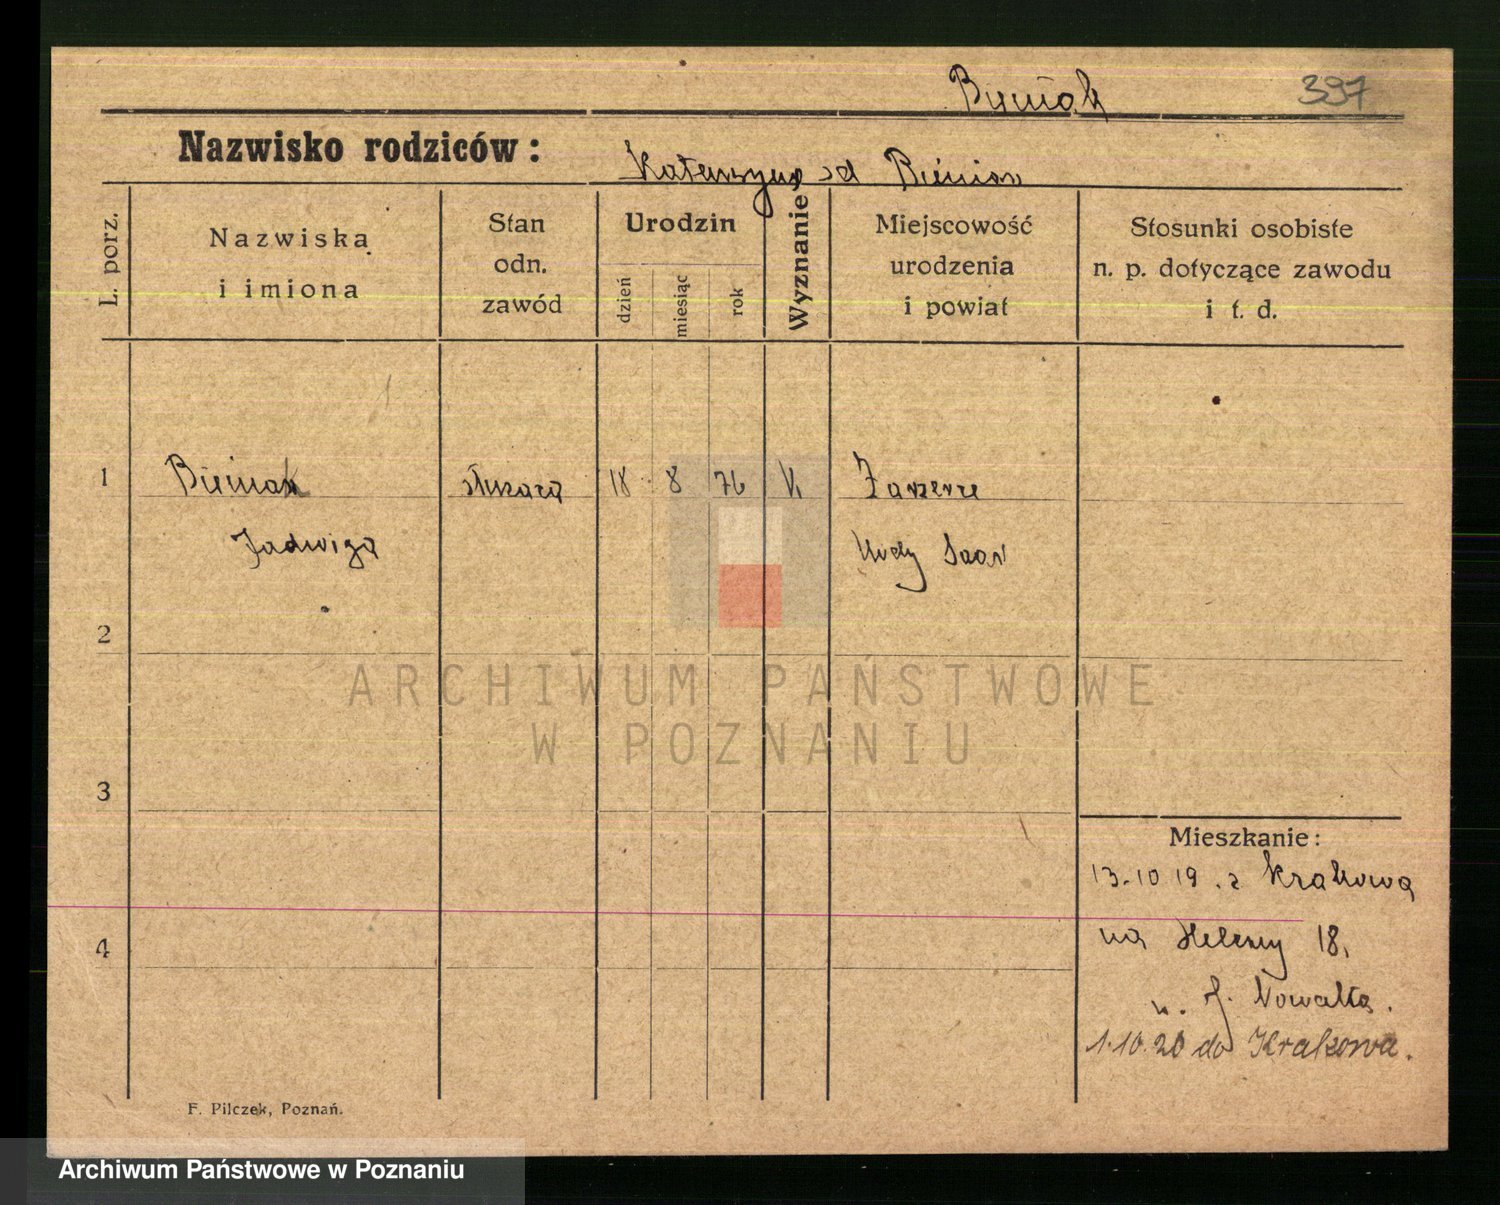 Bieniak 397
Nazwisko rodziców:
Katarzyna
L. porz.
Nazwiska
i imiona
Stan
odn.
zawód
Urodzin
dzień
miesiąc
rok
Wyznanie
Miejscowość
urodzenia
i powiat
Stosunki osobiste
n. p. dotyczące zawodu
i t. d.
1 Bieniak 18 8 76 k
Jadwiga
2
ARCHIWUM PAŃSTWOWE
W POZNANIU
3
Mieszkanie:
13.10 19. z Krakowa
4 na Heleny 18,
u. J. Nowaka.
1.10.20 do Krakowa.
F. Pilczek, Poznań.
Archiwum Państwowe w Poznaniu